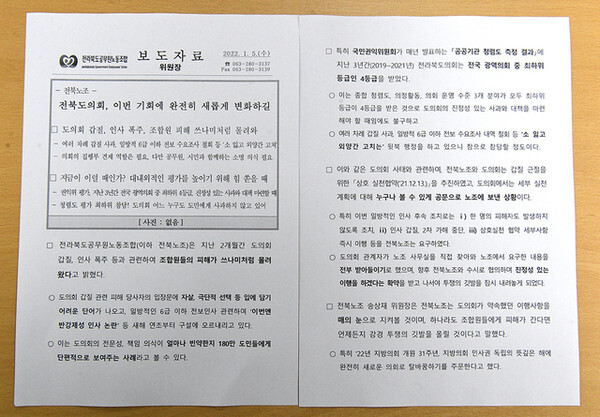 전라북도공무원노동조합
보 도 자 료
위원장
2022. 1. 5.(수)
☎ 063-280-3137
Fax 063-280-3139
- 전북노조 -
전북도의회, 이번 기회에 완전히 새롭게 변화하길
□ 도의회 갑질, 인사 폭주, 조합원 피해 쓰나미처럼 몰려와
- 여러 차례 갑질 사과, 일방적 6급 이하 전보 수요조사 철회 등 '소 잃고 외양간 고치는'
- 의회의 집행부 견제 역할은 필요, 다만 공무원, 시민과 함께하는 소명 의식 필요
□ 지금이 이럴 때인가? 대내외적인 평가를 높이기 위해 힘 쏟을 때
- 권익위 평가, 지난 3년간 전국 광역의회 중 최하위 4등급, 진정성 있는 사과와 대책 마련할 때
- 청렴도 평가 최하위 참담! 도의회 어느 누구도 도민에게 사과하지 않고 있어
[ 사진 : 없음 ]
□ 전라북도공무원노동조합(이하 전북노조)은 지난 2개월간 도의회
갑질, 인사 폭주 등과 관련하여 조합원들의 피해가 쓰나미처럼 몰려
왔다고 밝혔다.
○ 도의회 갑질 관련 피해 당사자의 입장문에 자살, 극단적 선택 등 입에 담기
어려운 단어가 나오고, 일방적인 6급 이하 전보인사 관련하여 '이번엔
반강제성 인사 논란' 등 새해 연초부터 구설에 오르내리고 있다.
○ 이는 도의회의 전문성, 책임 의식이 얼마나 빈약한지 180만 도민들에게
단편적으로 보여주는 사례라고 볼 수 있다.
□ 특히 국민권익위원회가 매년 발표하는 「공공기관 청렴도 측정 결과」에
지난 3년간(2019~2021년) 전라북도의회는 전국 광역의회 중 최하위
등급인 4등급을 받았다.
○ 이는 종합 청렴도, 의정활동, 의회 운영 수준 3개 분야가 모두 최하위
등급이 4등급을 받은 것으로 도의회의 진정성 있는 사과와 대책을 마련
해야 할 때임에도 불구하고
○ 여러 차례 갑질 사과, 일방적 6급 이하 전보 수요조사 내역 철회 등 '소 잃고
외양간 고치는' 뒷북 행정을 하고 있으니 참으로 참담할 정도이다.
□ 이와 같은 도의회 사태와 관련하여, 전북노조와 도의회는 갑질 근절을
위한 「상호 실천협약('21.12.13.)」을 추진하였고, 도의회에서는 세부 실천
계획에 대해 누구나 볼 수 있게 공문으로 노조에 보낸 상황이다.
○ 특히 이번 일방적인 인사 후속 조치로는 ⅰ) 한 명의 피해자도 발생하지
않도록 조치, ⅱ) 인사 갑질, 2차 가해 중단, ⅲ) 상호실천 협약 세부사항
즉시 이행 등을 전북노조는 요구하였다.
○ 도의회 관계자가 노조 사무실을 직접 찾아와 노조에서 요구한 내용을
전부 받아들이기로 했으며, 향후 전북노조와 수시로 협의하며 진정성 있는
이행을 하겠다는 확약을 받고 나서야 투쟁의 깃발을 잠시 내려놓게 되었다.
□ 전북노조 송상재 위원장은 전북노조는 도의회가 약속했던 이행사항을
매의 눈으로 지켜볼 것이며, 하나라도 조합원들에게 피해가 간다면
언제든지 강경 투쟁의 깃발을 올릴 것이라고 말했다.
○ 특히 '22년 지방의회 개원 31주년, 지방의회 인사권 독립의 뜻깊은 해에
완전히 새로운 의회로 탈바꿈하기를 주문한다고 했다.